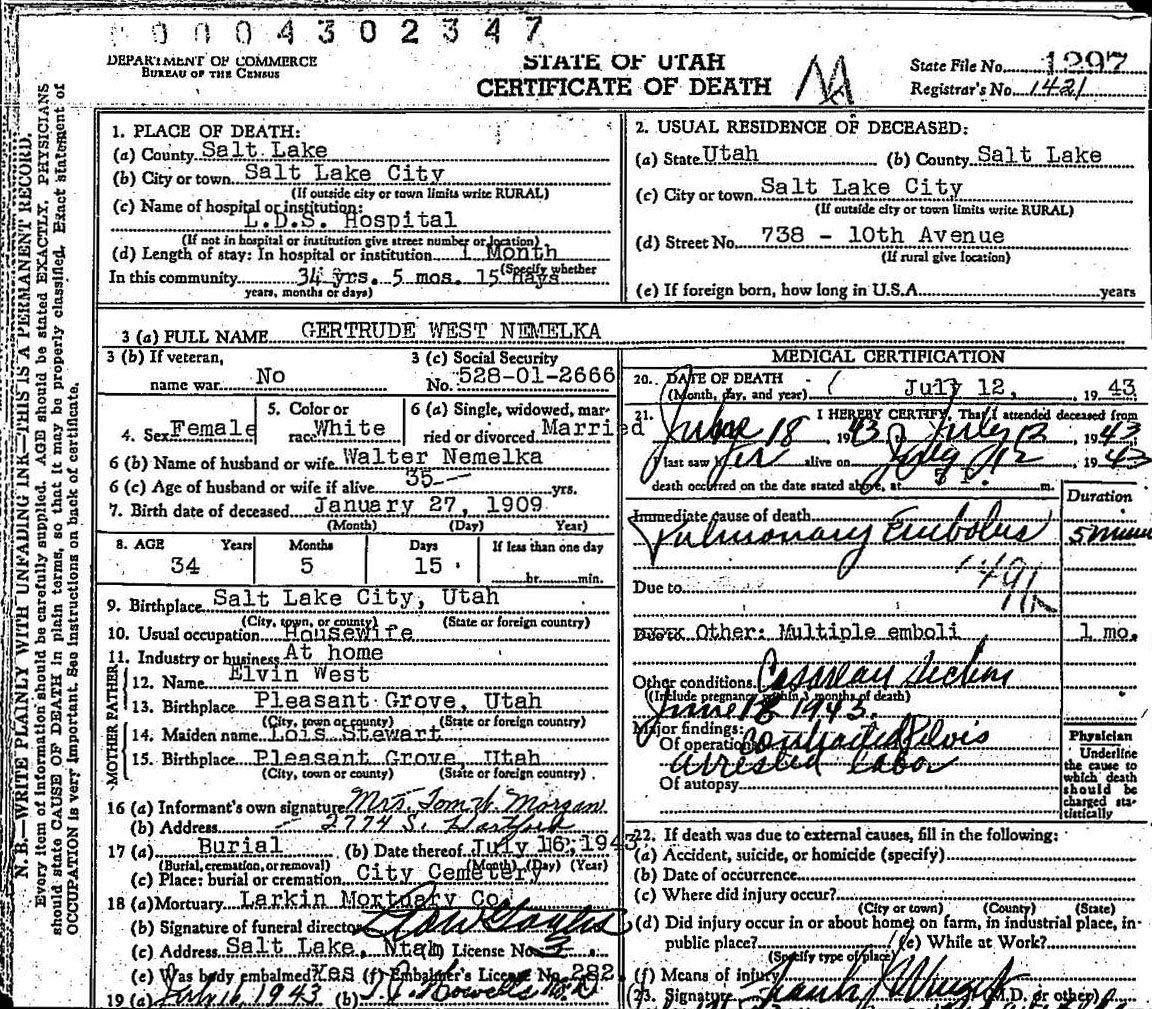 0 0 0 4 3 0 2 3 4 7
DEPARTMENT OF COMMERCE
BUREAU OF THE CENSUS
STATE OF UTAH
CERTIFICATE OF DEATH
State File No. 1297
Registrar's No. 1421
N. B.—WRITE PLAINLY WITH UNFADING INK—THIS IS A PERMANENT RECORD.
Every item of information should be carefully supplied. AGE should be stated EXACTLY. PHYSICIANS
should state CAUSE OF DEATH in plain terms, so that it may be properly classified. Exact statement of
OCCUPATION is very important. See instructions on back of certificate.
1. PLACE OF DEATH:
(a) County Salt Lake
(b) City or town Salt Lake City
(If outside city or town limits write RURAL)
(c) Name of hospital or institution:
L.D.S. Hospital
(If not in hospital or institution give street number or location)
(d) Length of stay: In hospital or institution 1 Month
(Specify whether
In this community 34 yrs. 5 mos. 15 days
years, months or days)
2. USUAL RESIDENCE OF DECEASED:
(a) State Utah (b) County Salt Lake
(c) City or town Salt Lake City
(If outside city or town limits write RURAL)
(d) Street No. 738 - 10th Avenue
(If rural give location)
(e) If foreign born, how long in U.S.A. years
3 (a) FULL NAME GERTRUDE WEST NEMELKA
3 (b) If veteran,
name war No
3 (c) Social Security
No. 528-01-2666
4. Sex Female
5. Color or
race White
6 (a) Single, widowed, mar-
ried or divorced Married
6 (b) Name of husband or wife Walter Nemelka
6 (c) Age of husband or wife if alive 35 yrs.
7. Birth date of deceased January 27, 1909
(Month) (Day) Year)
8. AGE Years Months Days If less than one day
34 5 15 hr. min.
9. Birthplace Salt Lake City, Utah
(City, town, or county) (State or foreign country)
10. Usual occupation Housewife
11. Industry or business At home
FATHER
12. Name Elvin West
13. Birthplace Pleasant Grove, Utah
(City, town or county) (State or foreign country)
MOTHER
14. Maiden name Lois Stewart
15. Birthplace Pleasant Grove, Utah
(City, town or county) (State or foreign country)
16 (a) Informant's own signature Mrs. Tom W. Morgan
(b) Address 2774 S. Hartford
17 (a) Burial (b) Date thereof July 16, 1943
(Burial, cremation, or removal) (Month) (Day) (Year)
(c) Place: burial or cremation City Cemetery
18 (a) Mortuary Larkin Mortuary Co.
(b) Signature of funeral director
(c) Address Salt Lake, Utah License No. 3
(e) Was body embalmed? Yes (f) Embalmer's License No. 282
19 (a) July 16, 1943 (b)
MEDICAL CERTIFICATION
20. DATE OF DEATH
(Month, day, and year) July 12, 19 43
21. I HEREBY CERTIFY, That I attended deceased from
June 18, 1943, July 12 1943
I last saw her alive on July 12 1943
death occurred on the date stated above, at m.
Duration
Immediate cause of death
Pulmonary Embolus 5 minu
Due to
Other: Multiple emboli 1 mo.
Other conditions Casarean Section
(Include pregnancy within 3 months of death)
June 18 1943.
Major findings:
Of operations Contracted Pelvis
arrested labor
Of autopsy
Physician
Underline
the cause to
which death
should be
charged sta-
tistically
22. If death was due to external causes, fill in the following:
(a) Accident, suicide, or homicide (specify)
(b) Date of occurrence
(c) Where did injury occur?
(City or town) (County) (State)
(d) Did injury occur in or about home, on farm, in industrial place, in-
public place? (e) While at Work?
(Specify type of place)
(f) Means of injury
23. Signature (M.D. or other)